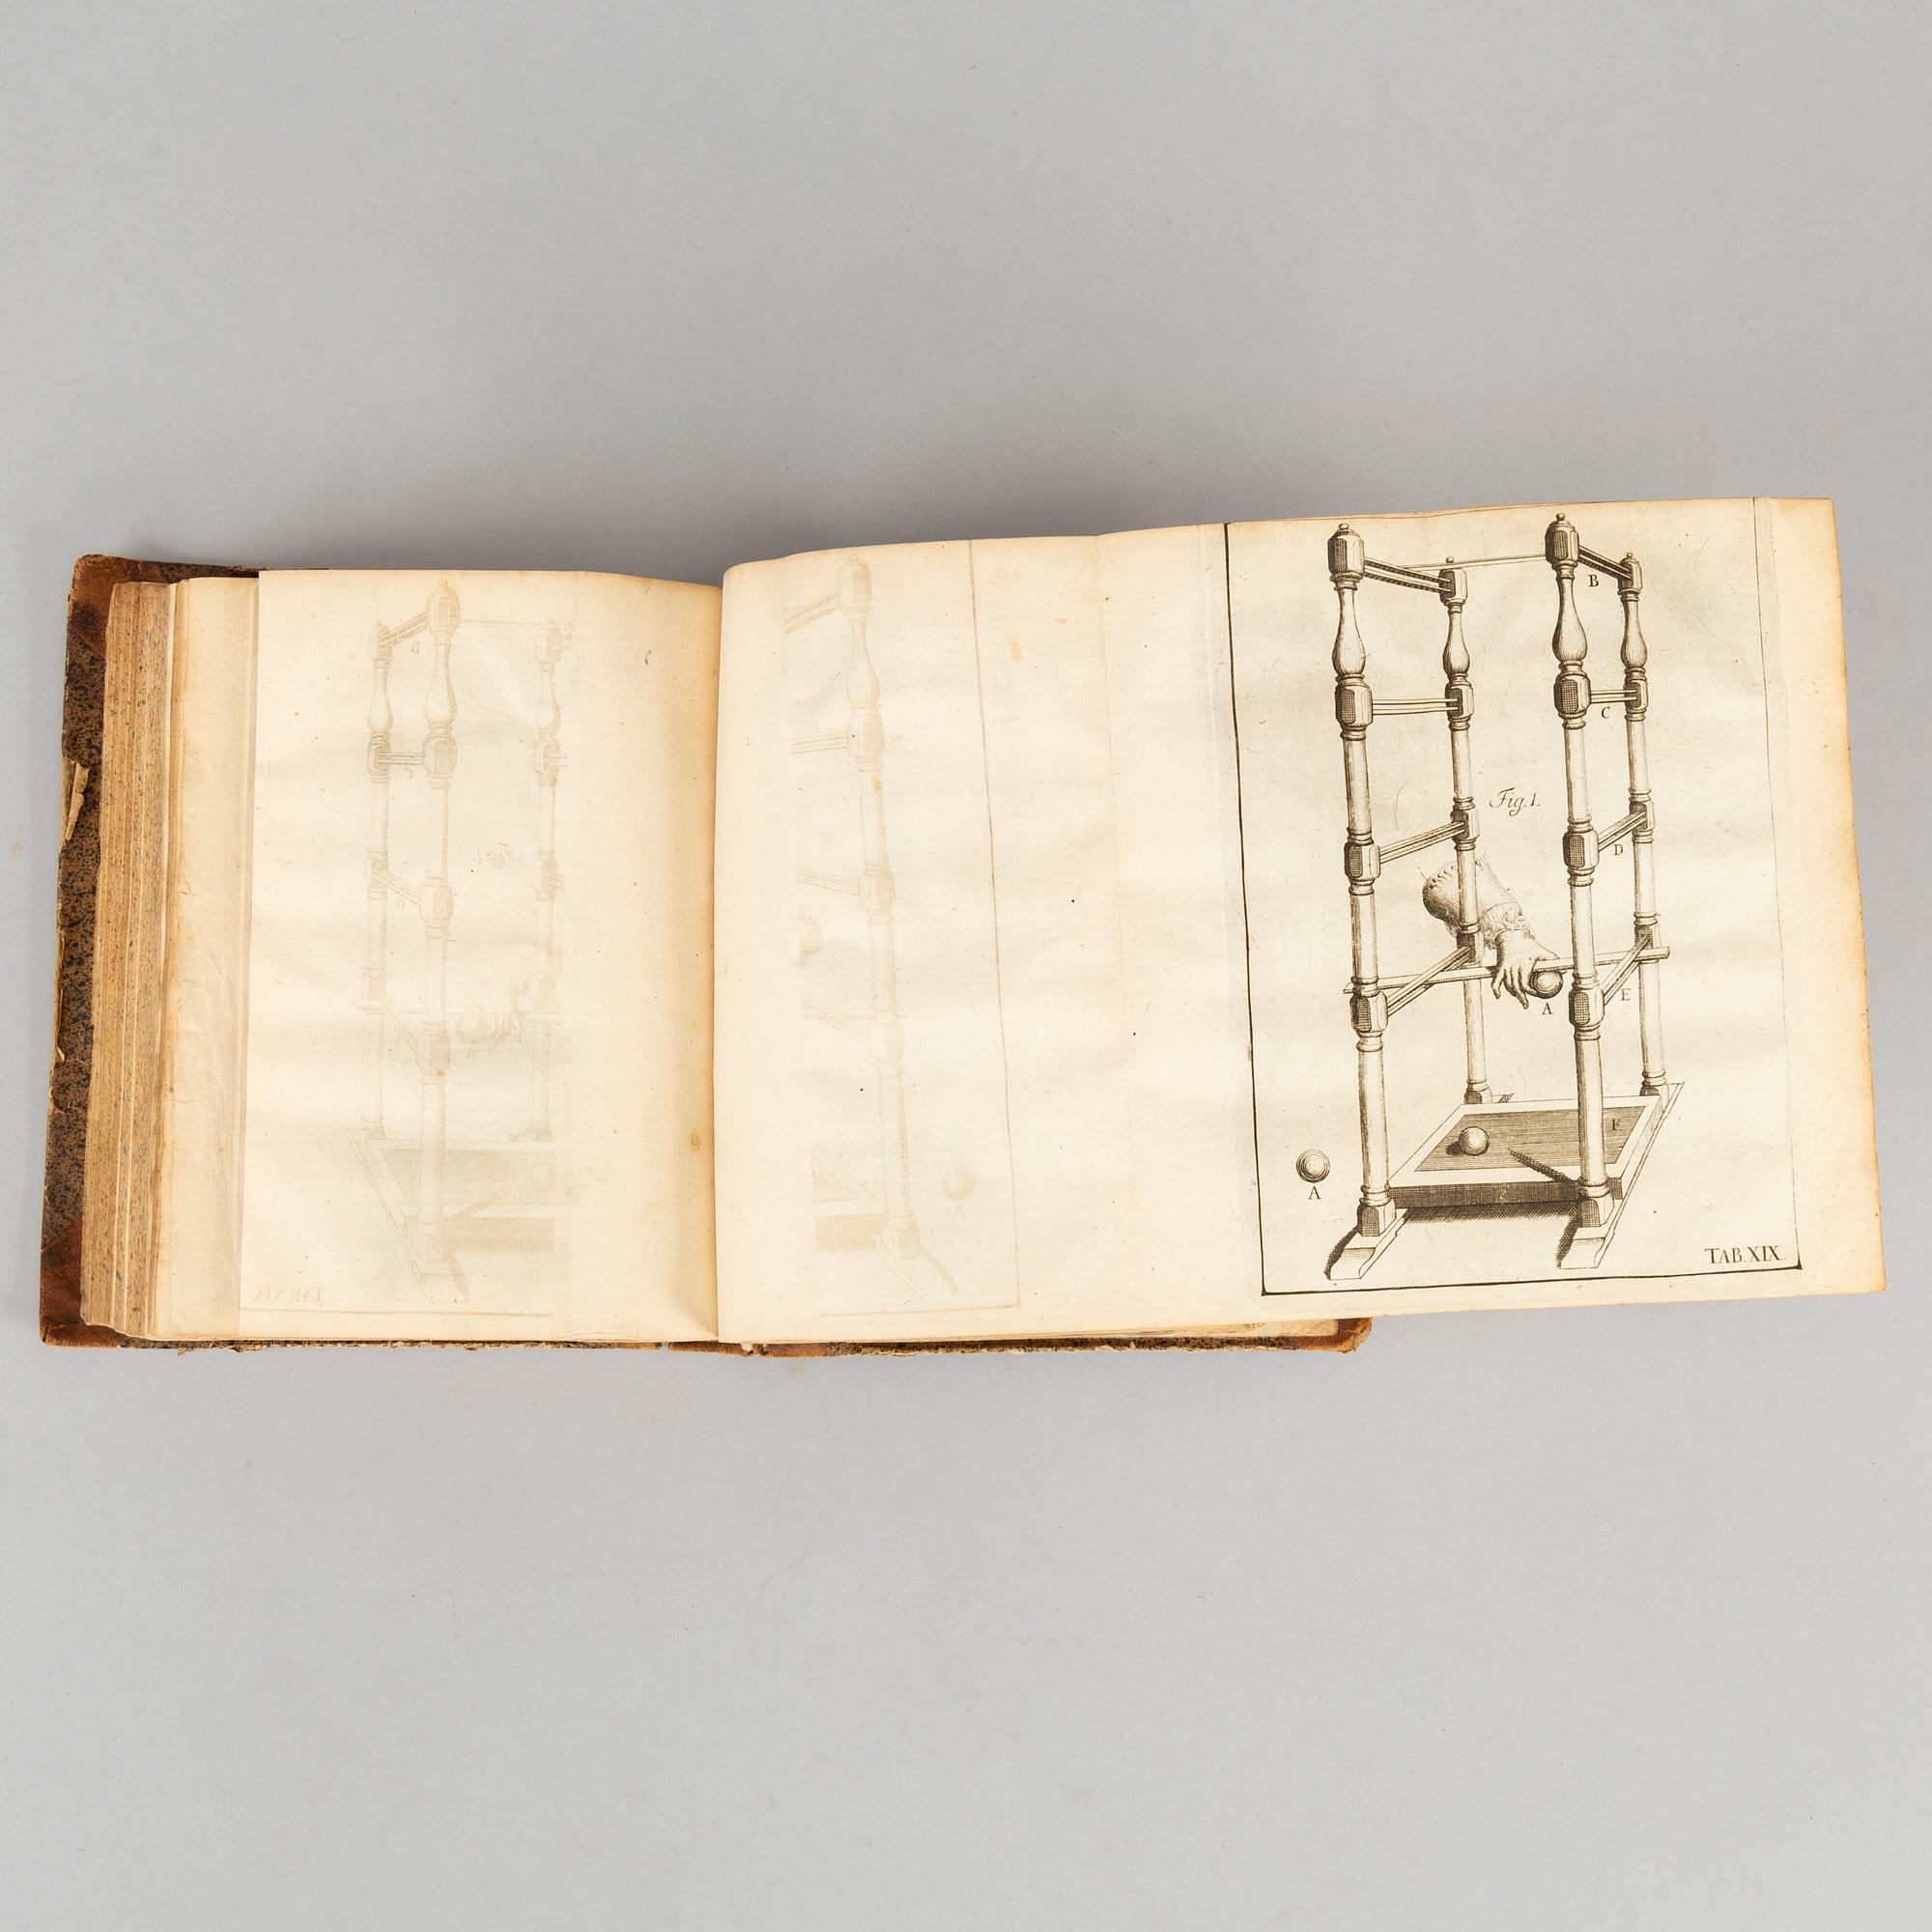 B
C
Fig. 1.
D
E
A
F
A
TAB. XIX.